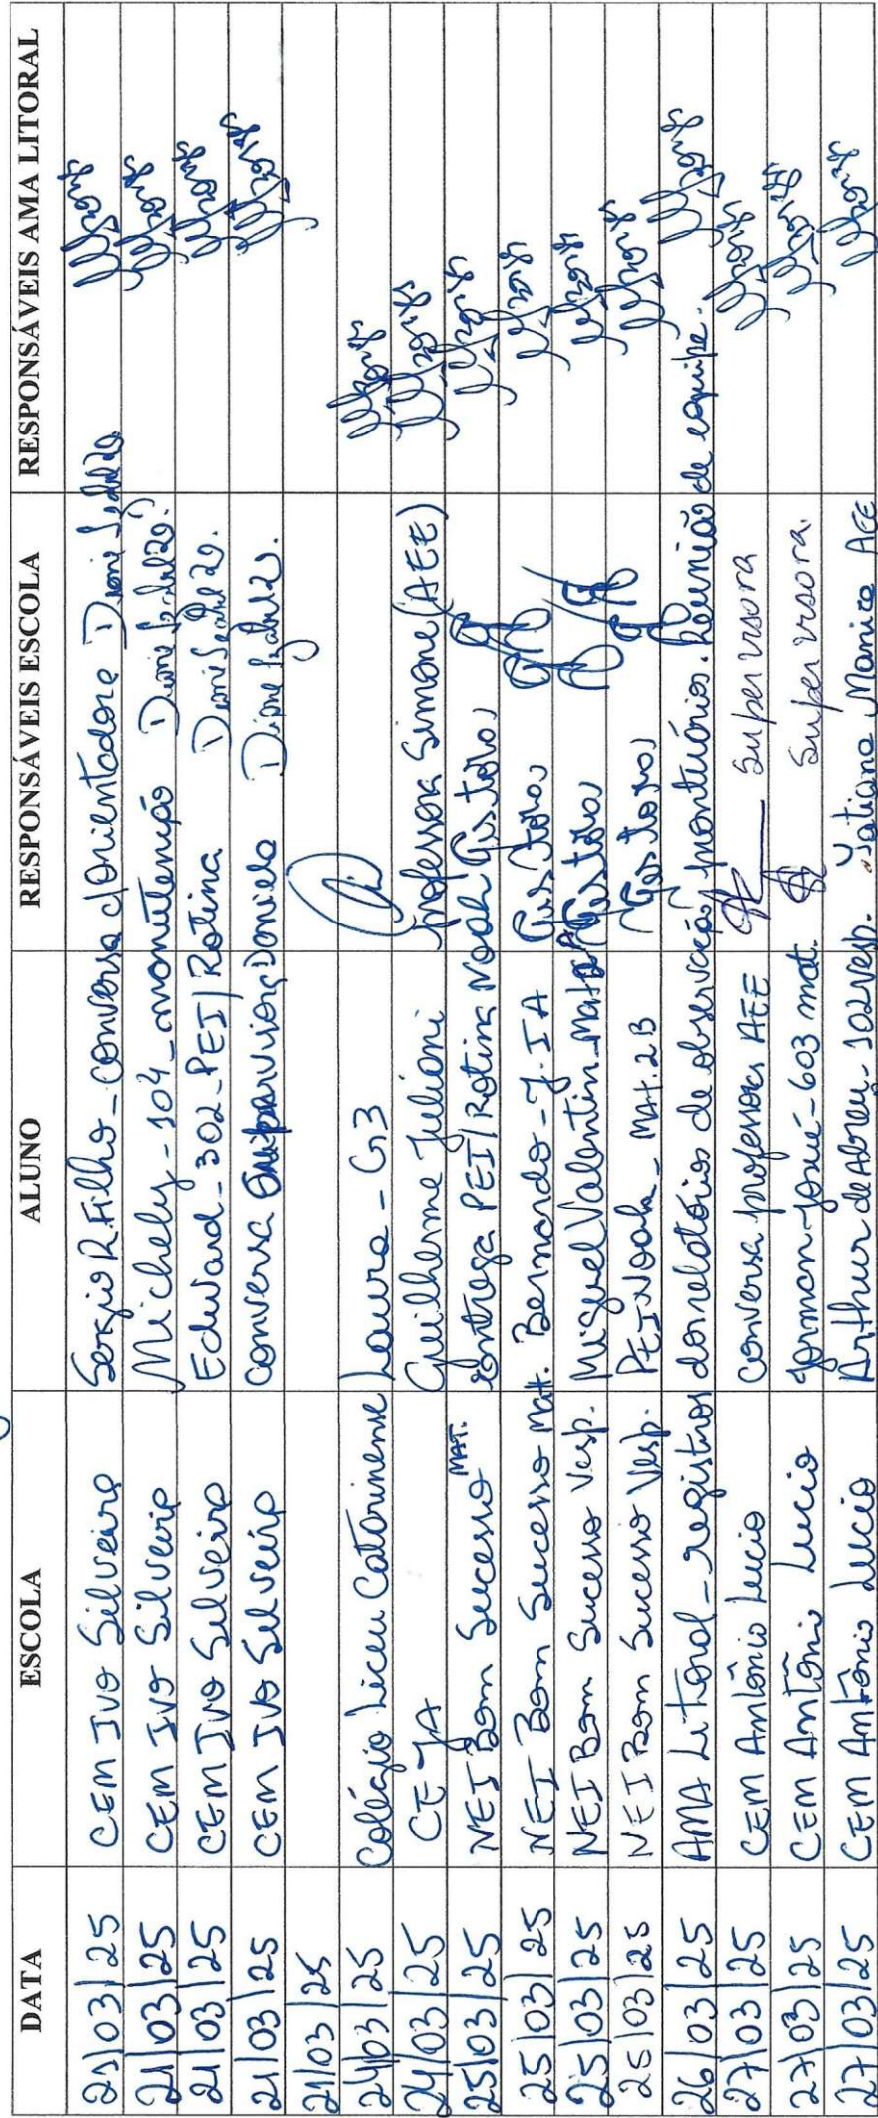 DATA ESCOLA ALUNO RESPONSÁVEIS ESCOLA RESPONSÁVEIS AMA LITORAL
21/03/25 CEM Ivo Silveira Sergio R. Filho - conversa c/ orientadora
21/03/25 CEM Ivo Silveira Michely - 104 - manutenção
21/03/25 CEM Ivo Silveira Edward - 302 - PEI/Rotina
21/03/25 CEM Ivo Silveira conversa Daniela
21/03/25
24/03/25 Colégio Liceu Catarinense Laura - G3
24/03/25 CEJA Guilherme Juliani Professora Simone (AEE)
25/03/25 NEI Bom Sucesso MAT. Entrega PEI/Rotina Noah
25/03/25 NEI Bom Sucesso Mat. Bernardo - J. IA
25/03/25 NEI Bom Sucesso Vesp. Miguel Valentin
25/03/25 NEI Bom Sucesso Vesp. PEI Noah - MAT. 2B
26/03/25 AMA Litoral - registros dos relatórios de observação, prontuários. Reunião de equipe.
27/03/25 CEM Antônio Lucio conversa professora AEE Supervisora
27/03/25 CEM Antônio Lucio 603 mat. Supervisora.
27/03/25 CEM Antônio Lucio Arthur de Abreu - 102 vesp. Tatiane AEE